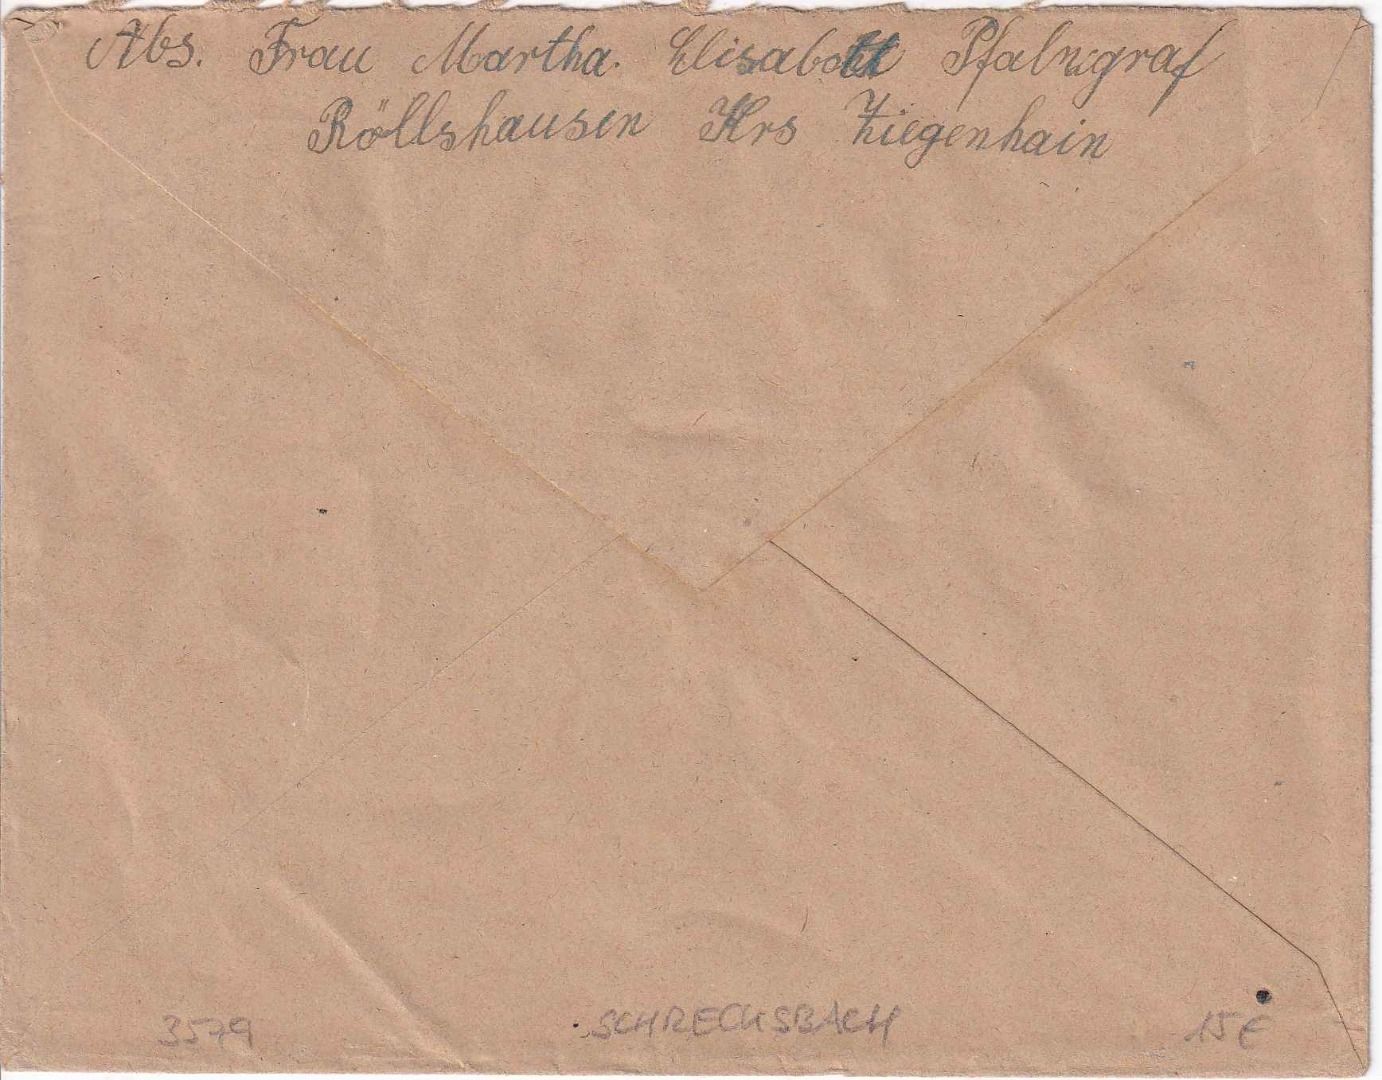 Abs. Frau Martha. Elisabeth Pfalzgraf
Röllshausen Krs Ziegenhain
3579 SCHRECKSBACH 15 €